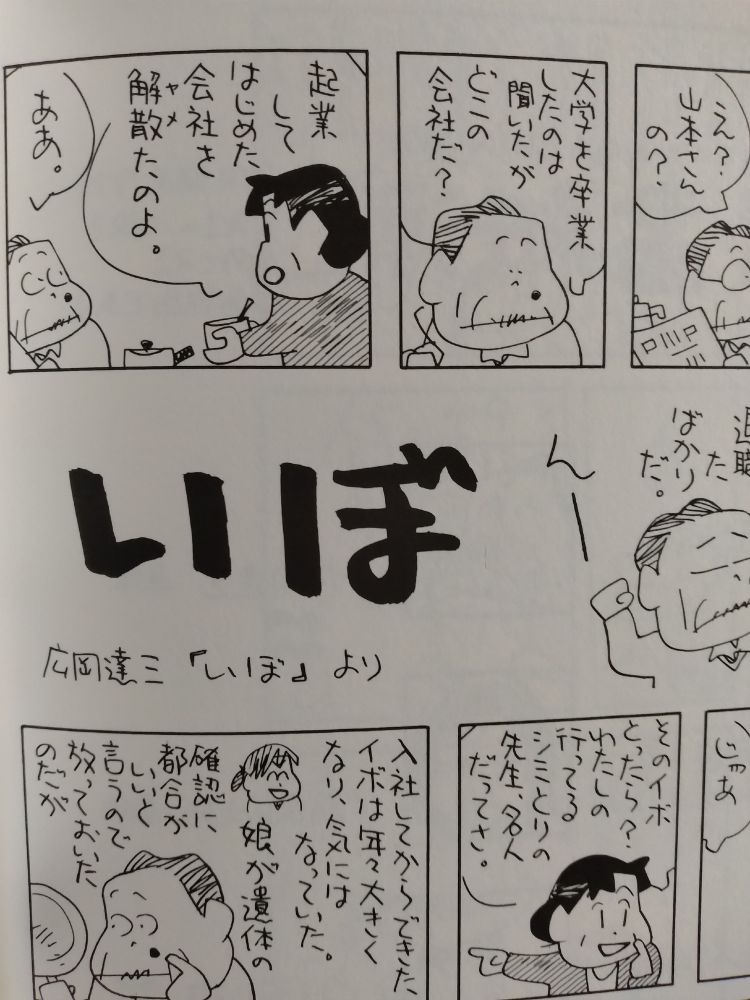 え？
山本さん
の？
大学を卒業
したのは
聞いたが
どこの
会社だ？
起業
して
はじめた
会社を
解散たのよ。
ヤメ
ああ。
た
ばかり
だ。
んー
いぼ
広岡達三『いぼ』より
じゃあ
そのイボ
とったら？
わたしの
行ってる
シミとりの
先生、名人
だってさ。
入社してからできた、
イボは年々大きく
なり、気には
なっていた。
娘が遺体の
確認に
都合が
いいと
言うので
放っておいた
のだが